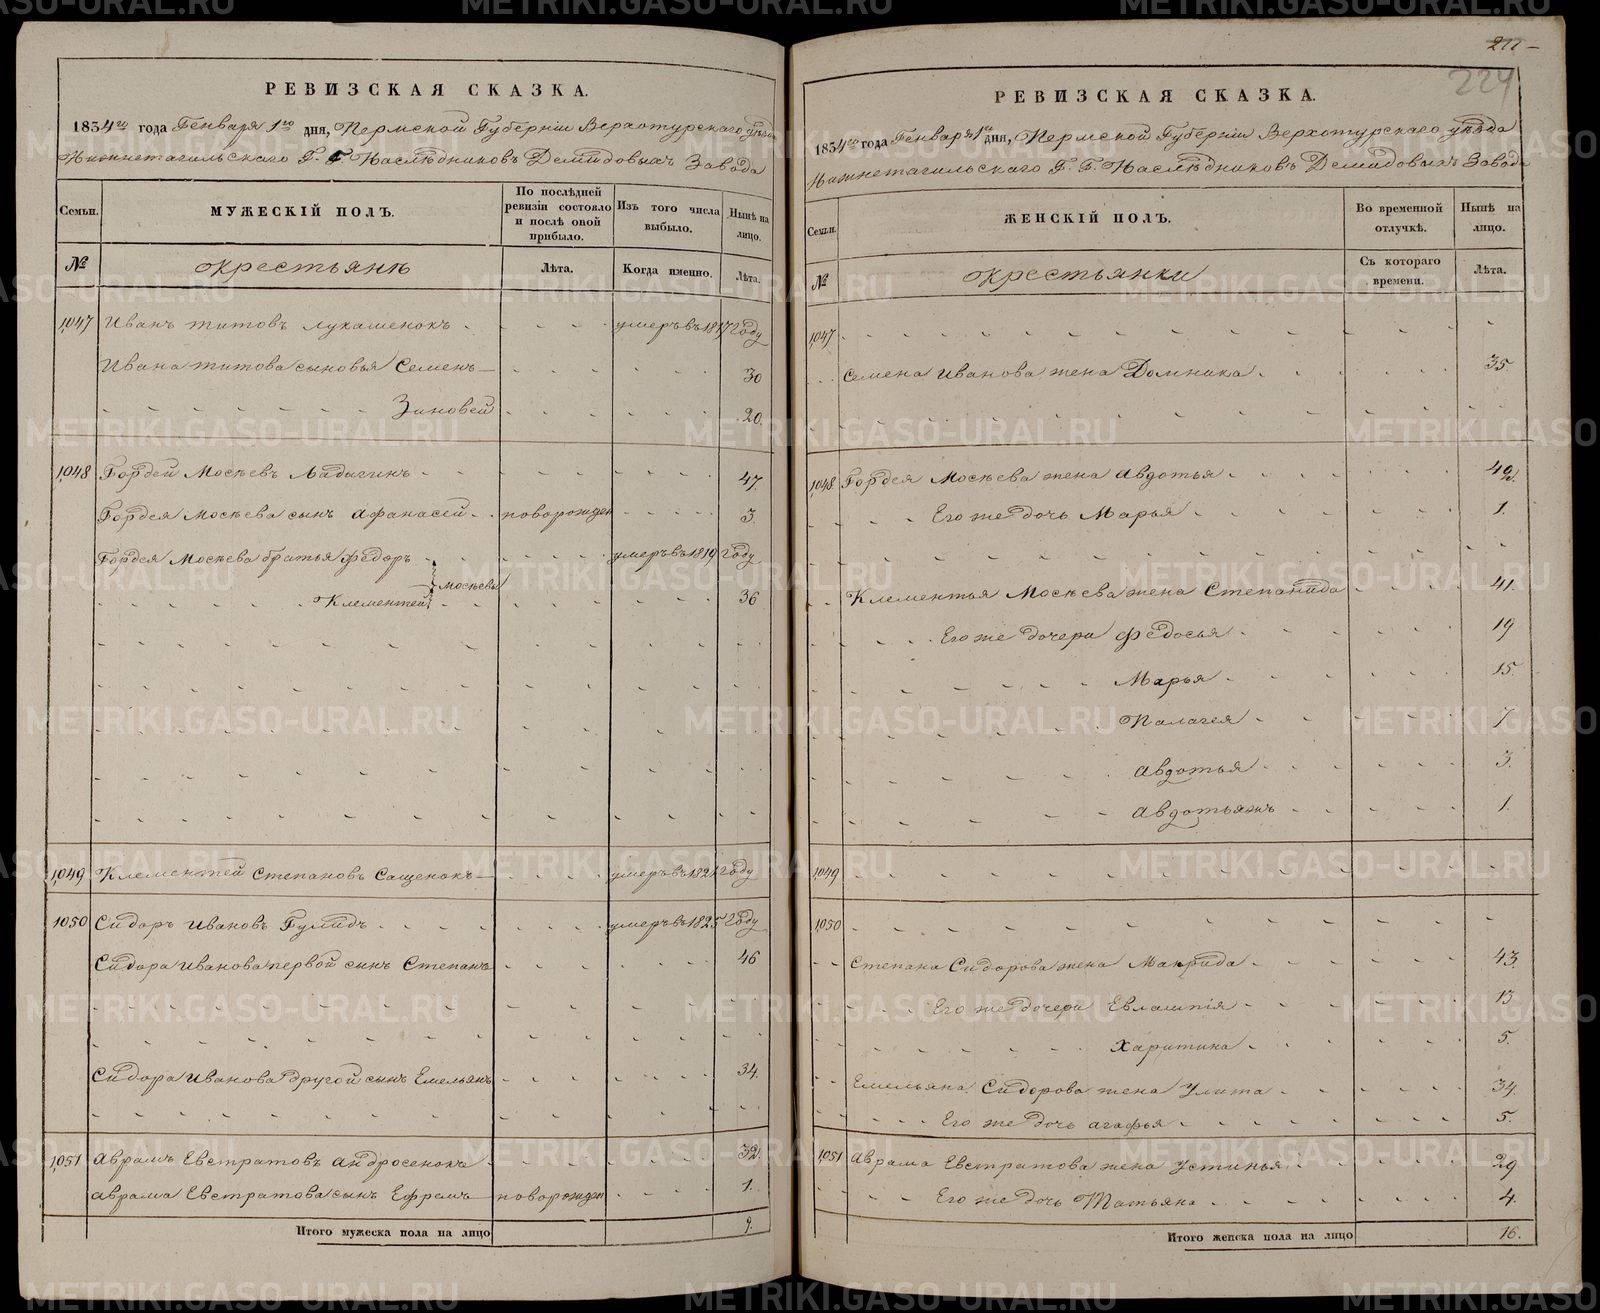 РЕВИЗСКАЯ СКАЗКА.
1834го года Генваря 1го дня, Пермской Губерніи Верхотурскаго уѣзда
Нижнетагильскаго Г. Г. Наслѣдниковъ Демидовыхъ Завода
Семьи.
МУЖЕСКІЙ ПОЛЪ.
По послѣдней ревизіи состояло и послѣ оной прибыло.
Изъ того числа выбыло.
Нынѣ на лицо.
№
Крестьянѣ
Лѣта.
Когда именно.
Лѣта.
1047 Иванъ Титовъ Лукашенокъ умеръ въ 1817 году
Ивана Титова сыновья Семенъ 30
Зиновей 20.
1048 Гордей Мосѣевъ Ладыгинъ 47.
Гордея Мосѣева сынъ Афанасей новорожден 3.
Гордея Мосѣева братья Федоръ умеръ въ 1819 году
Мосѣевы
Клементей 36
1049 Клементей Степановъ Сащенокъ умеръ въ 1821 году
1050 Сидоръ Ивановъ Гулидъ умеръ въ 1825 году
Сидора Иванова первой сынъ Степанъ 46
Сидора Иванова другой сынъ Емельянъ 34.
1051 Аврамъ Евстратовъ Андросенокъ 32.
Аврама Евстратова сынъ Ефремъ новорожден 1.
Итого мужеска пола на лицо 9.
211
224
РЕВИЗСКАЯ СКАЗКА.
1834го года Генваря 1го дня, Пермской Губерніи Верхотурскаго уѣзда
Нижнетагильскаго Г. Г. Наслѣдниковъ Демидовыхъ Завода
Семьи.
ЖЕНСКІЙ ПОЛЪ.
Во временной отлучкѣ.
Нынѣ на лицо.
№
Крестьянки
Съ котораго времени.
Лѣта.
1047
Семена Иванова жена Домника 35.
1048 Гордея Мосѣева жена Авдотья 42.
Его же дочь Марья 1.
Клементья Мосѣева жена Степанида 41.
Его же дочери Федосья 19
Марья 15.
Палагея 7
Авдотья 3.
Авдотьяжъ 1.
1049
1050
Степана Сидорова жена Макрида 43.
Его же дочери Евлампія 13
Харитина 5.
Емельяна Сидорова жена Улита 34.
Его же дочь Агафья 5.
1051 Аврама Евстратова жена Устинья 29
Его же дочь Татьяна 4.
Итого женска пола на лицо 16.
METRIKI.GASO-URAL.RU